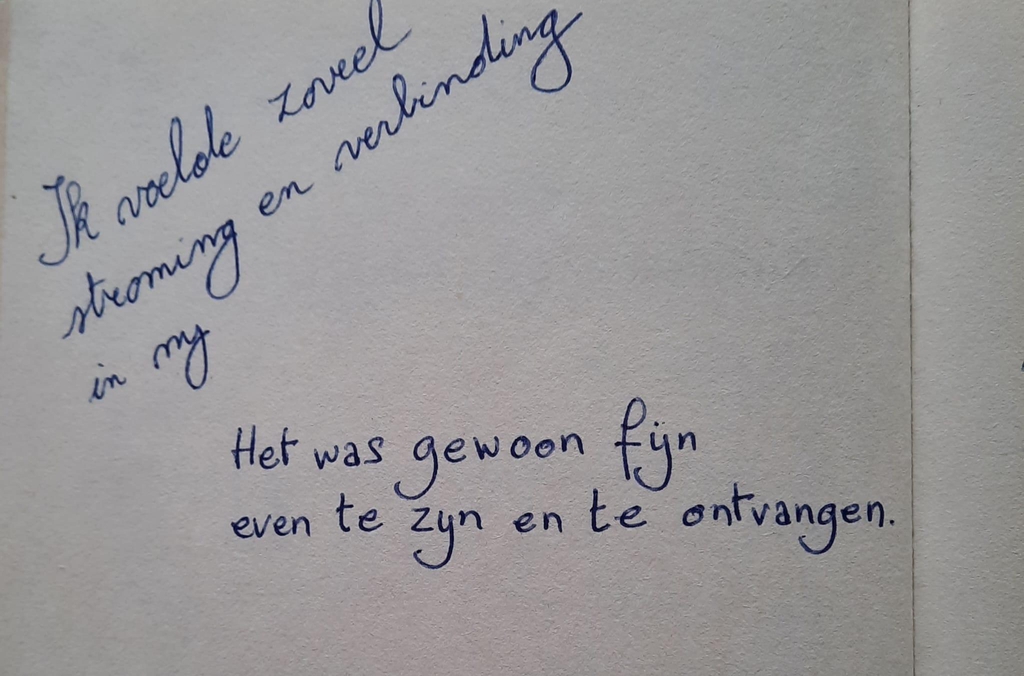 Ik voelde zoveel
stroming en verbinding
in my
Het was gewoon fijn
even te zyn en te ontvangen.